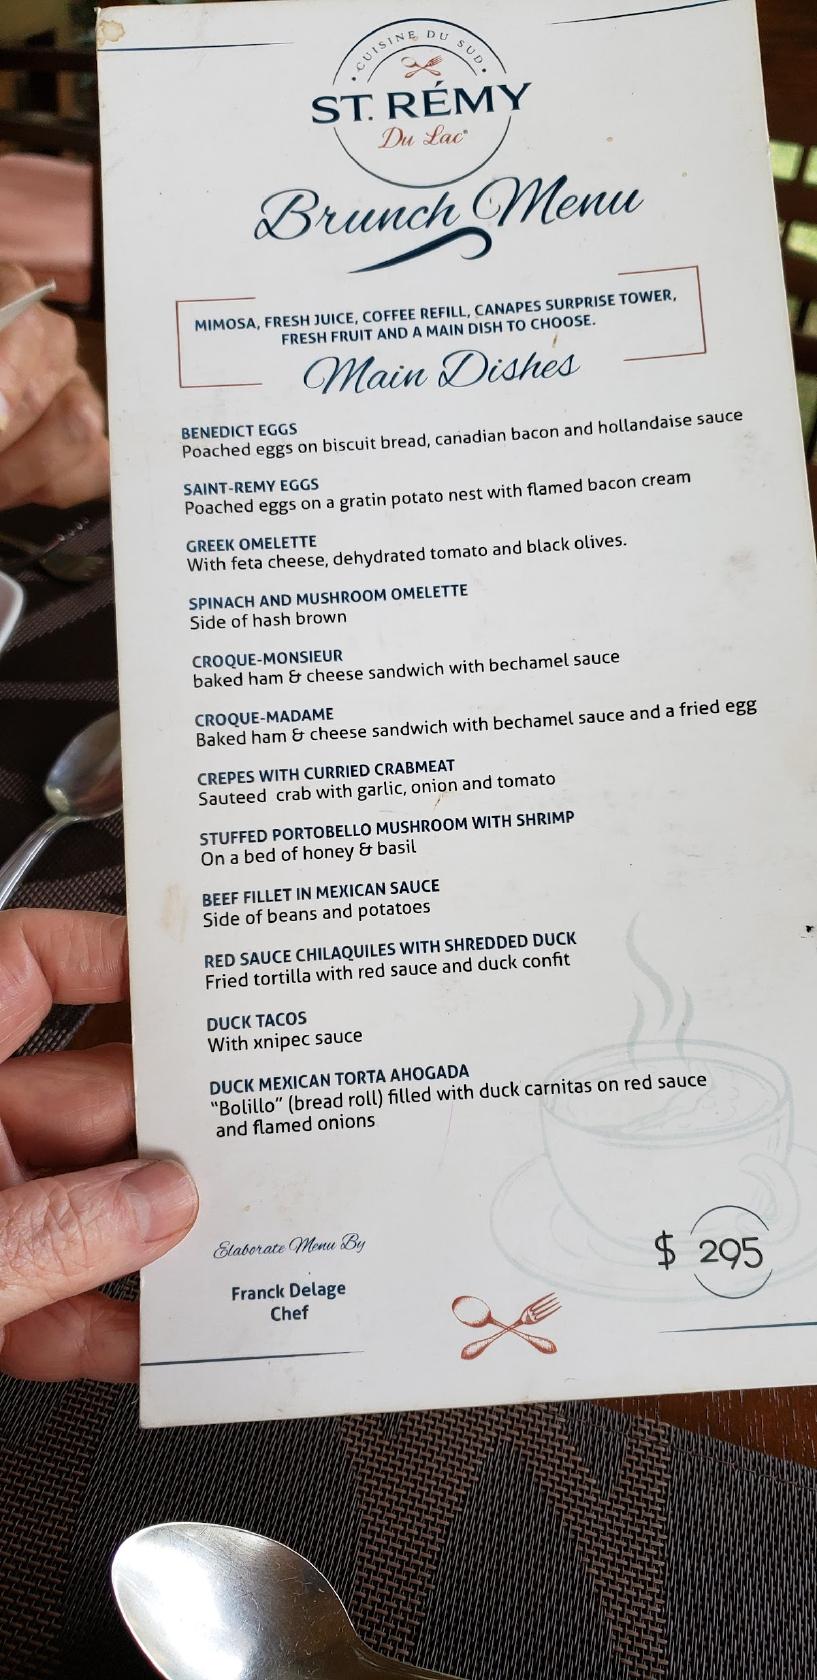 • CUISINE DU SUD •
ST. RÉMY
Du Lac®
Brunch Menu
MIMOSA, FRESH JUICE, COFFEE REFILL, CANAPES SURPRISE TOWER,
FRESH FRUIT AND A MAIN DISH TO CHOOSE.
Main Dishes
BENEDICT EGGS
Poached eggs on biscuit bread, canadian bacon and hollandaise sauce
SAINT-REMY EGGS
Poached eggs on a gratin potato nest with flamed bacon cream
GREEK OMELETTE
With feta cheese, dehydrated tomato and black olives.
SPINACH AND MUSHROOM OMELETTE
Side of hash brown
CROQUE-MONSIEUR
baked ham & cheese sandwich with bechamel sauce
CROQUE-MADAME
Baked ham & cheese sandwich with bechamel sauce and a fried egg
CREPES WITH CURRIED CRABMEAT
Sauteed crab with garlic, onion and tomato
STUFFED PORTOBELLO MUSHROOM WITH SHRIMP
On a bed of honey & basil
BEEF FILLET IN MEXICAN SAUCE
Side of beans and potatoes
RED SAUCE CHILAQUILES WITH SHREDDED DUCK
Fried tortilla with red sauce and duck confit
DUCK TACOS
With xnipec sauce
DUCK MEXICAN TORTA AHOGADA
"Bolillo" (bread roll) filled with duck carnitas on red sauce
and flamed onions
Elaborate Menu By
Franck Delage
Chef
$ 295